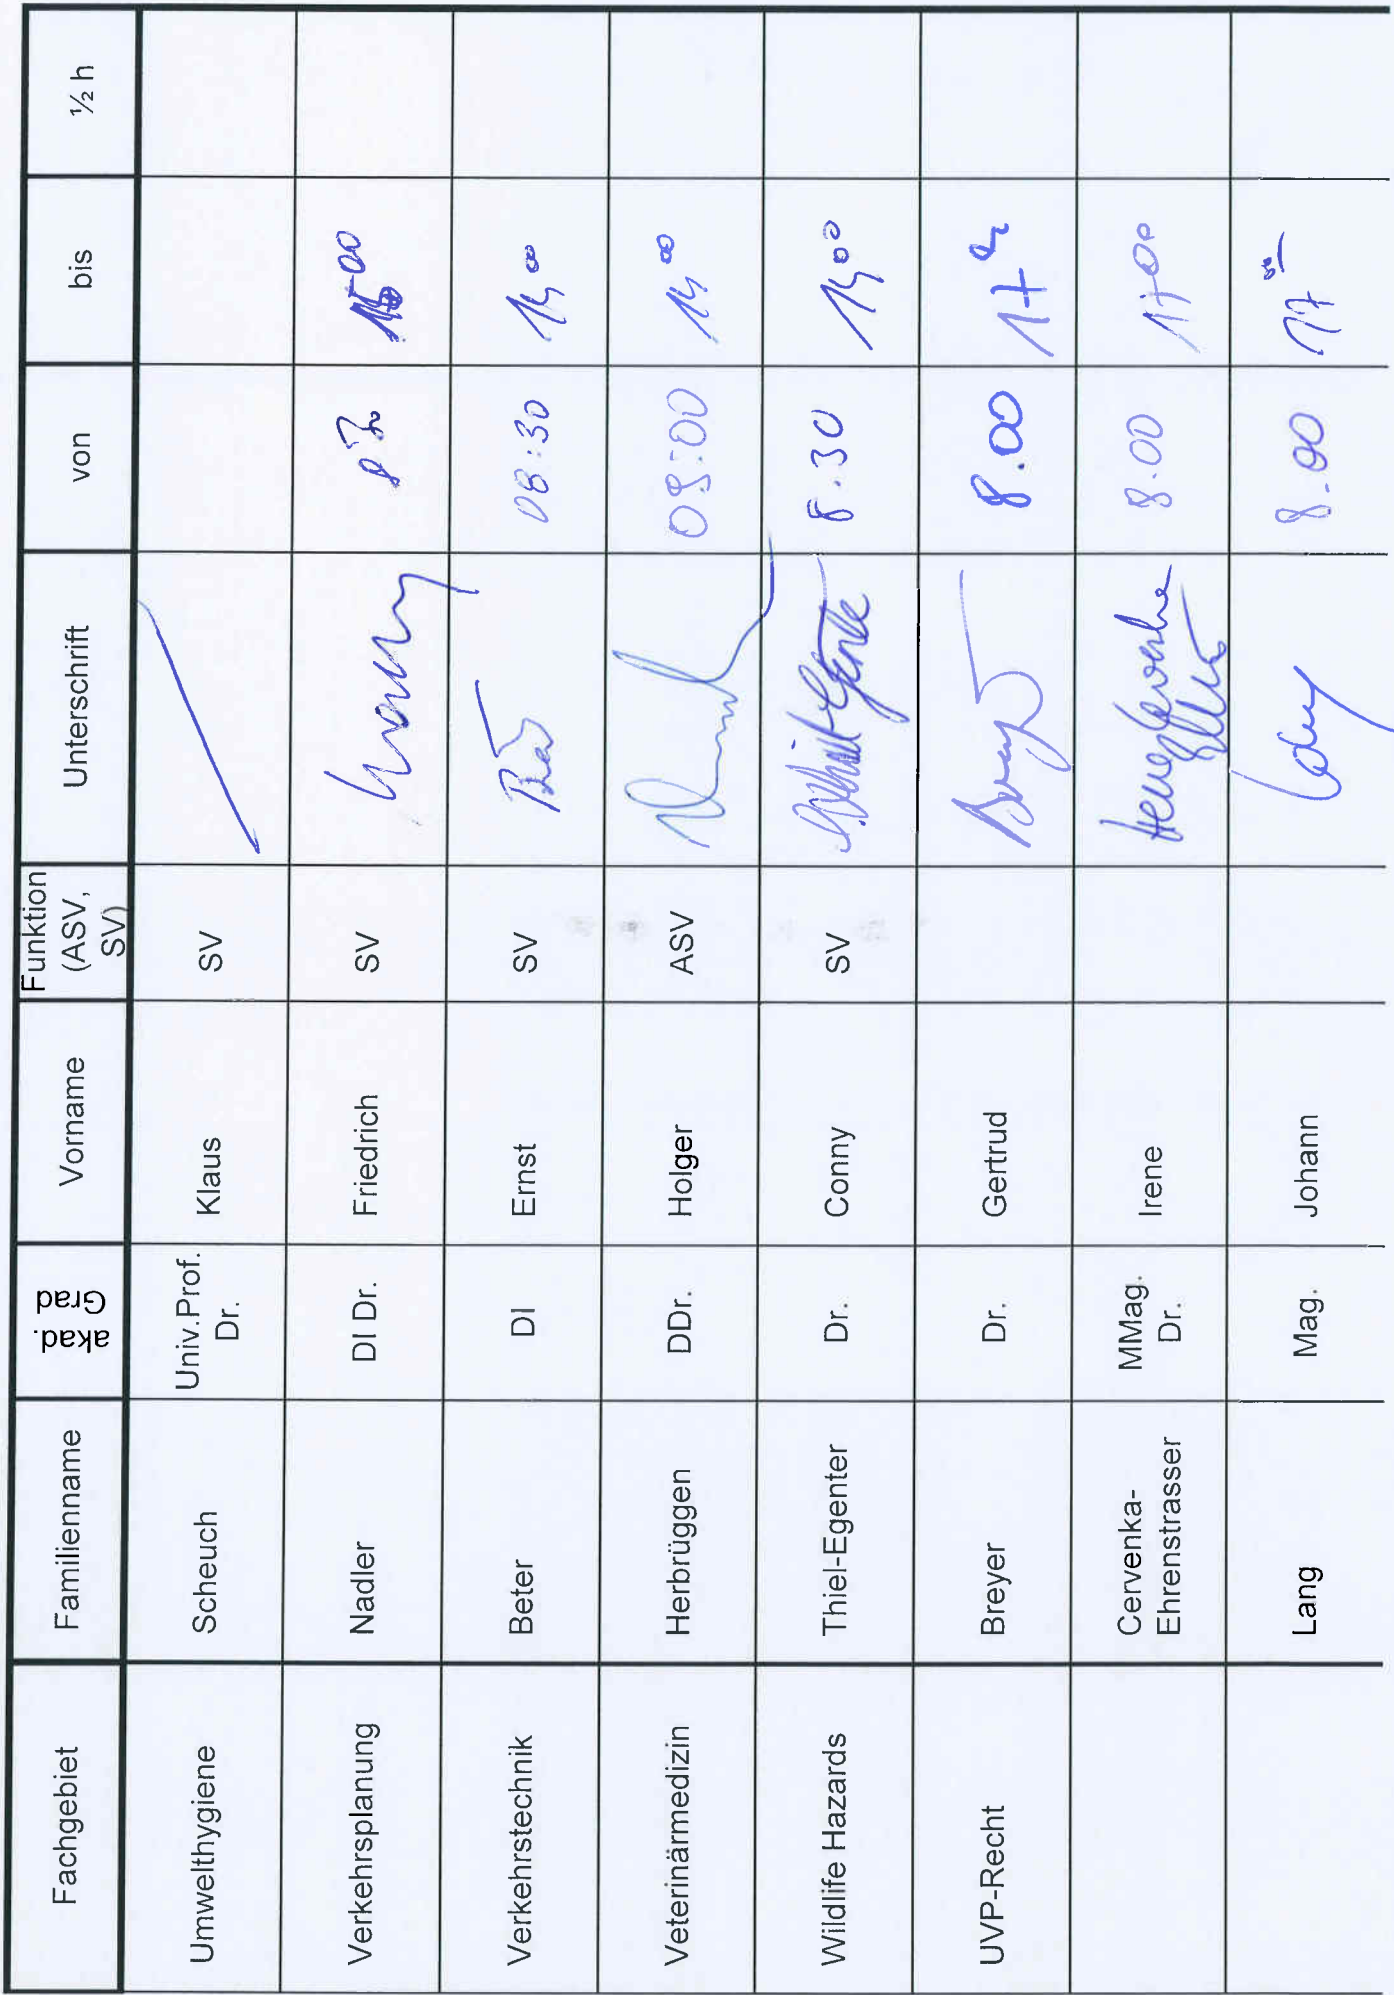 Fachgebiet Familienname akad. Grad Vorname Funktion (ASV, SV) Unterschrift von bis ½ h
Umwelthygiene Scheuch Univ.Prof. Dr. Klaus SV
Verkehrsplanung Nadler DI Dr. Friedrich SV 8 30
Verkehrstechnik Beter DI Ernst SV 08:30 14 00
Veterinärmedizin Herbrüggen DDr. Holger ASV 14 00
Wildlife Hazards Thiel-Egenter Dr. Conny SV 8.30 14 00
UVP-Recht Breyer Dr. Gertrud 8.00 17
Cervenka-Ehrenstrasser MMag. Dr. Irene 8.00 17 00
Lang Mag. Johann Lang 8.00 17 00